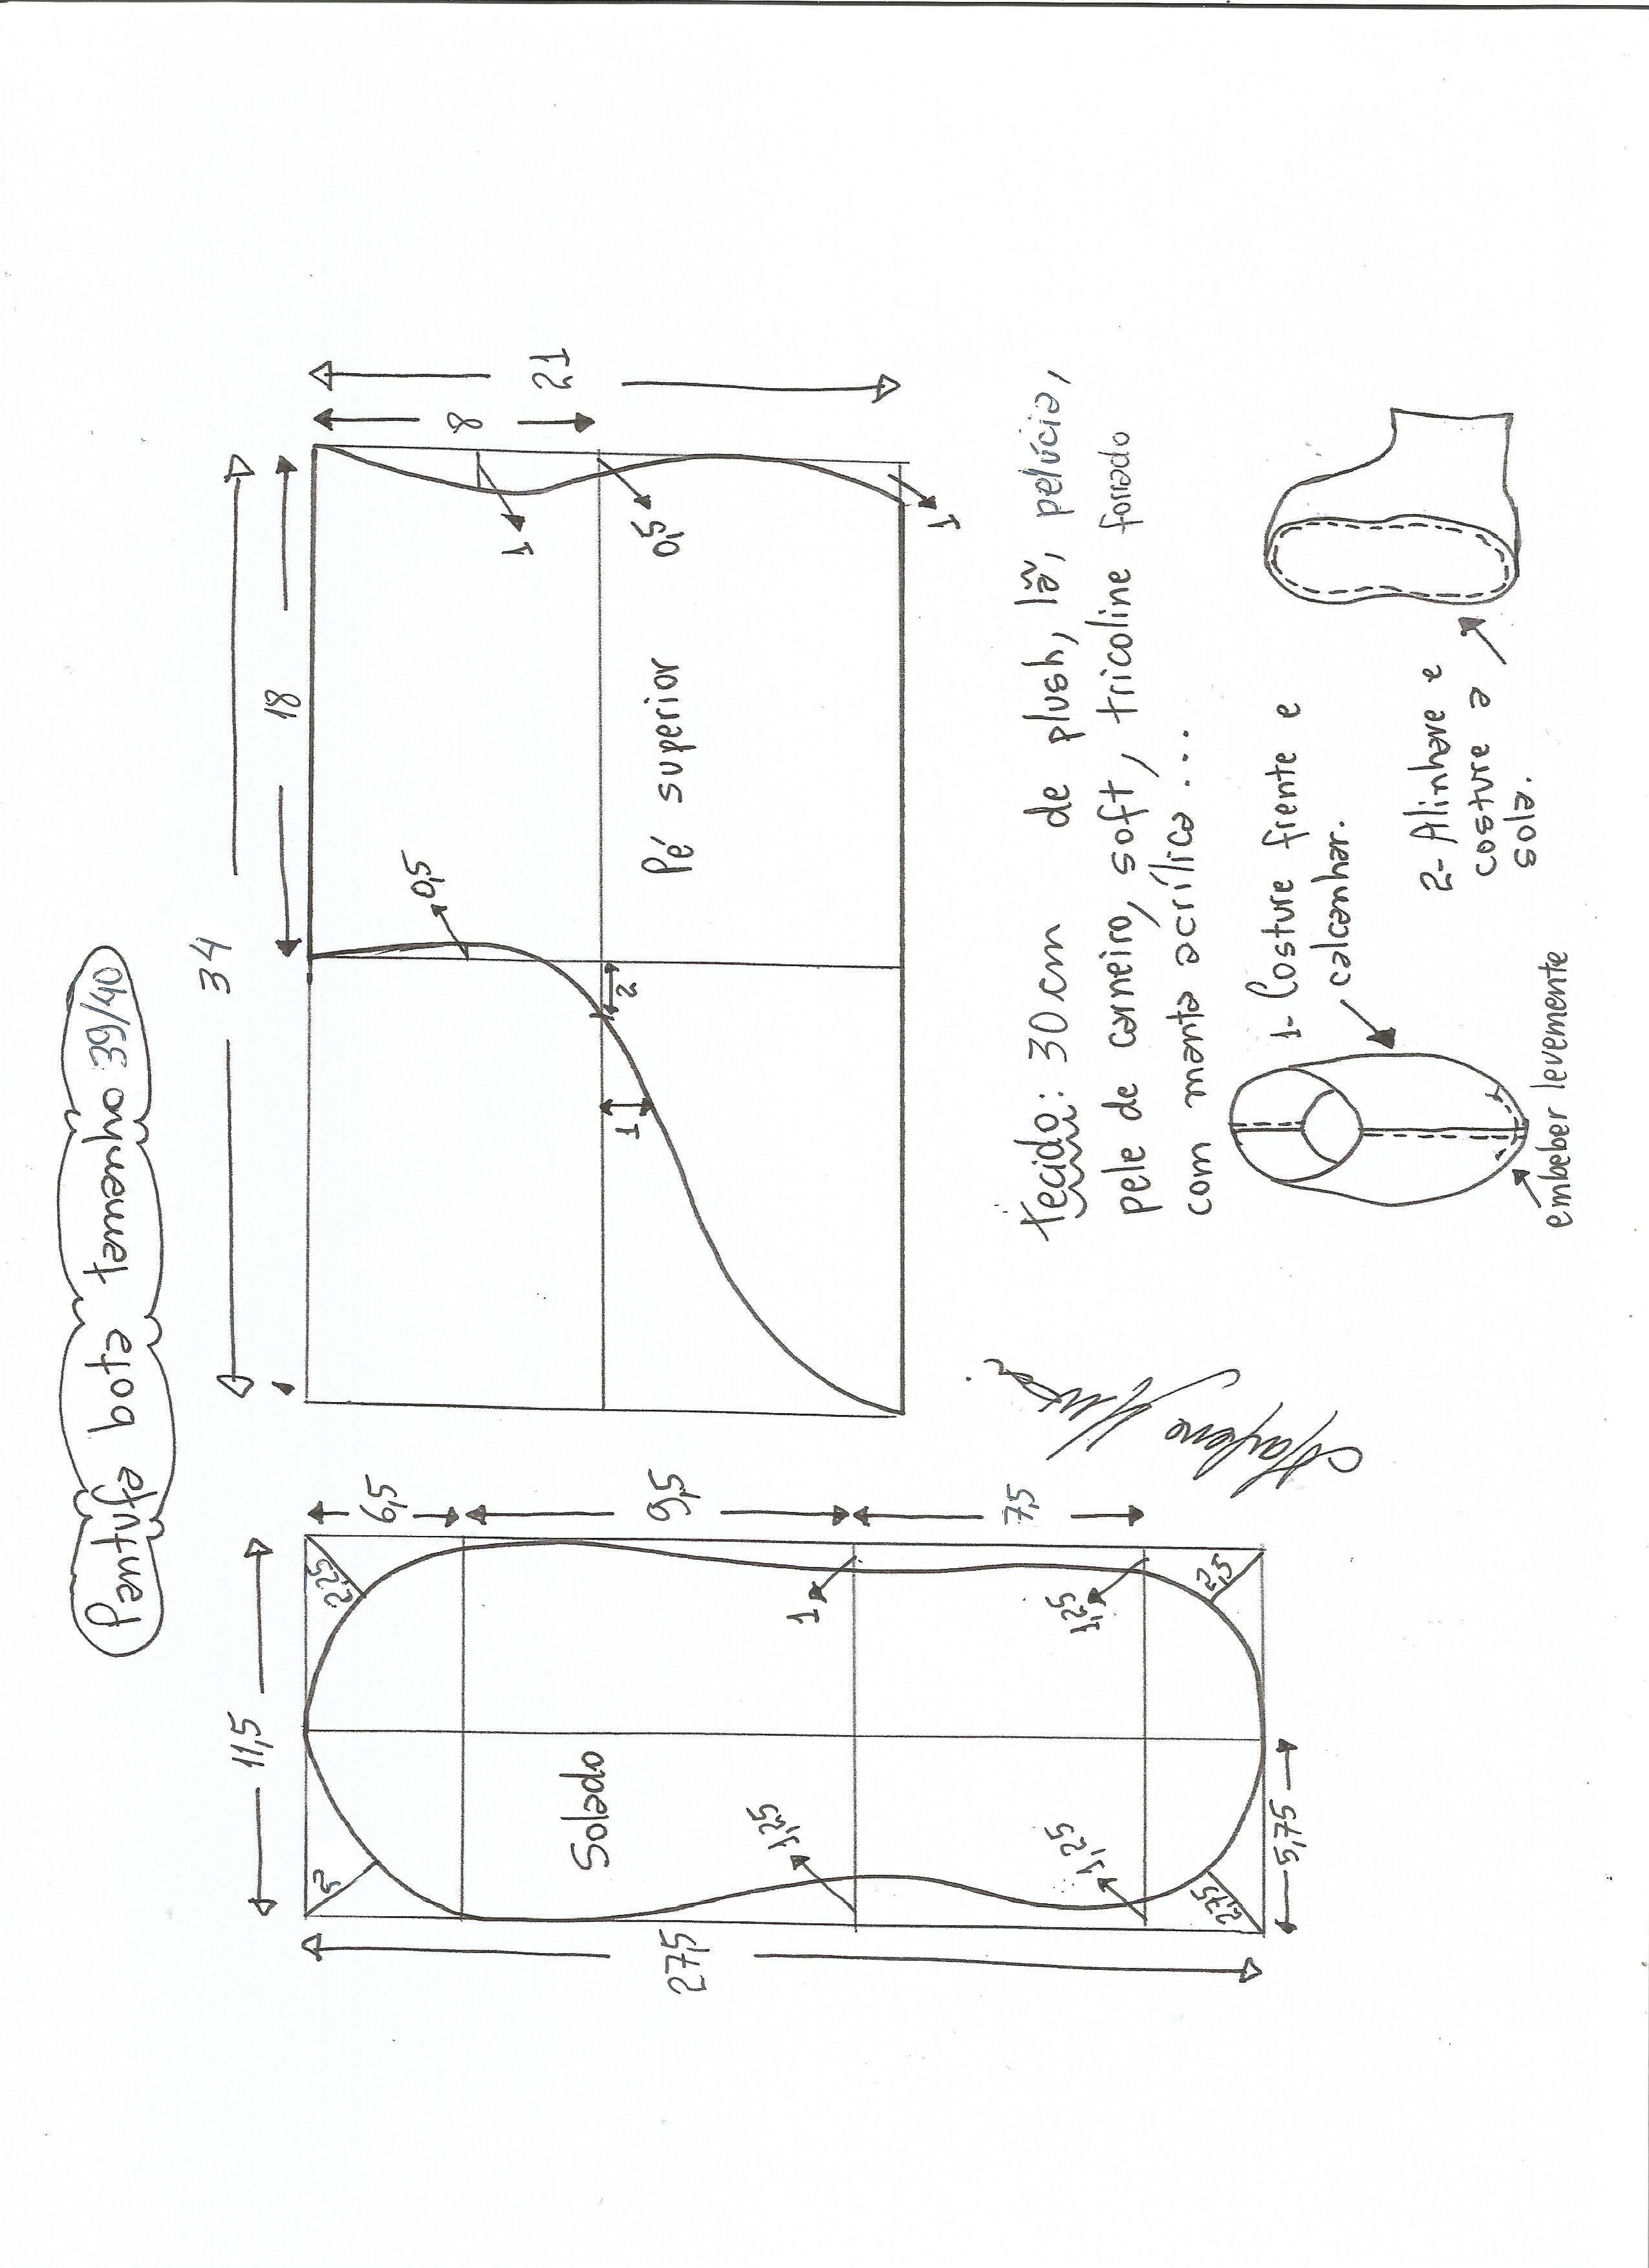 Pantufa bota tamanho 39/40
11,5
2
2,25
6,5
9,5
7,5
Solado
1,25
1
1,25
1,25
2,75
2,5
27,5
5,75
34
18
0,5
2
1
Pé superior
1
0,5
1
8
21
Tecido: 30cm de plush, lã, pelúcia,
pele de carneiro, soft, tricoline forrado
com manta acrílica...
1- Costure frente e
calcanhar.
embeber levemente
2- Alinhave e
costure a
sola.